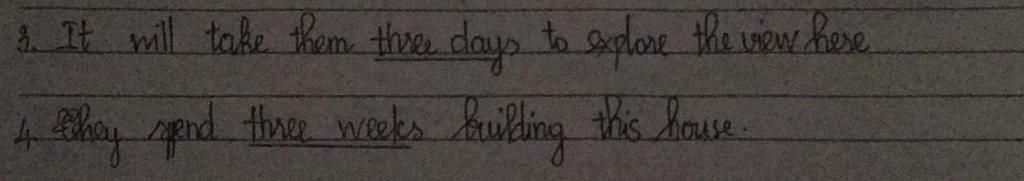 3. It will take them three days to explore the view here
4. They spend three weeks building this house.